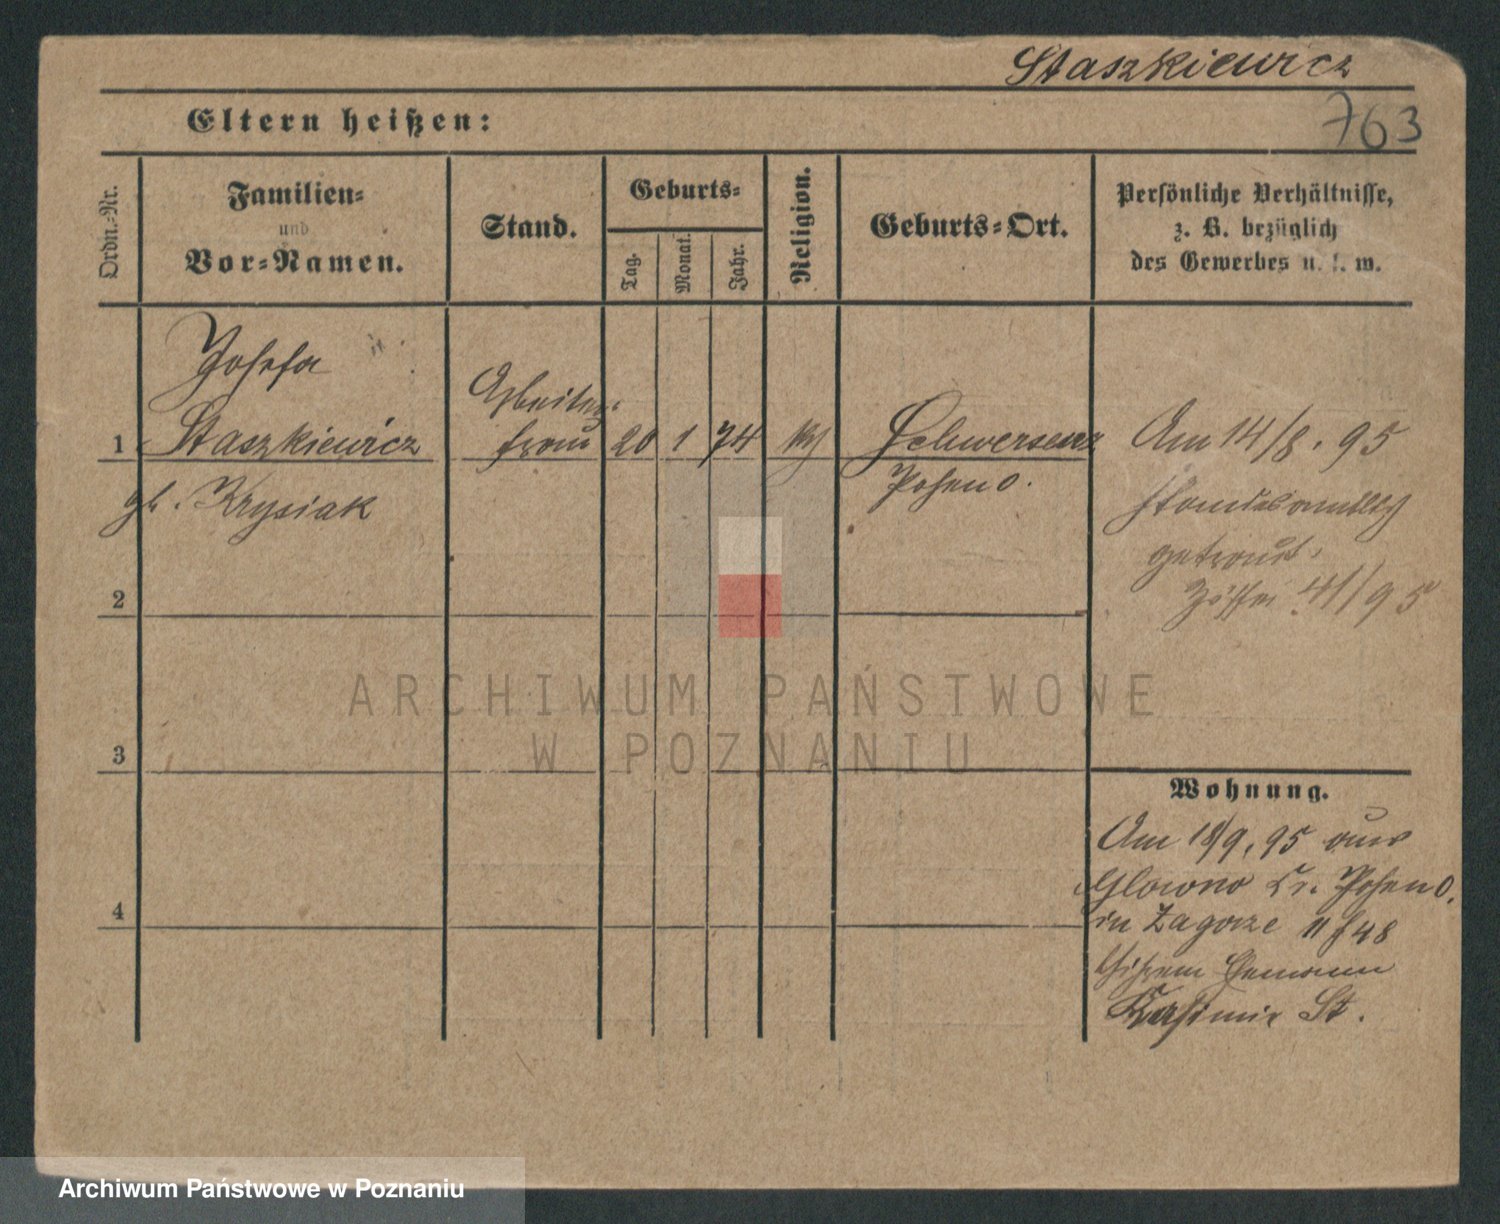 Staszkiewicz
763
Eltern heißen:
Ordn.-Nr.
Familien-
und
Vor-Namen.
Stand.
Geburts-
Tag.
Monat.
Jahr.
Religion.
Geburts-Ort.
Persönliche Verhältnisse,
z. B. bezüglich
des Gewerbes u. s. w.
Josefa
Arbeiter
1 Staszkiewicz frau 20 1 74 Schwersenz Am 14/8. 95
gb. Krysiak Posen O. standesamtlich
getraut.
41/95
2
3
4
Wohnung.
Am 18/9. 95 aus
Glowno Kr. Posen O.
in Zagorze 11
Ehemann
Kasimir St.
ARCHIWUM PAŃSTWOWE
W POZNANIU
Archiwum Państwowe w Poznaniu